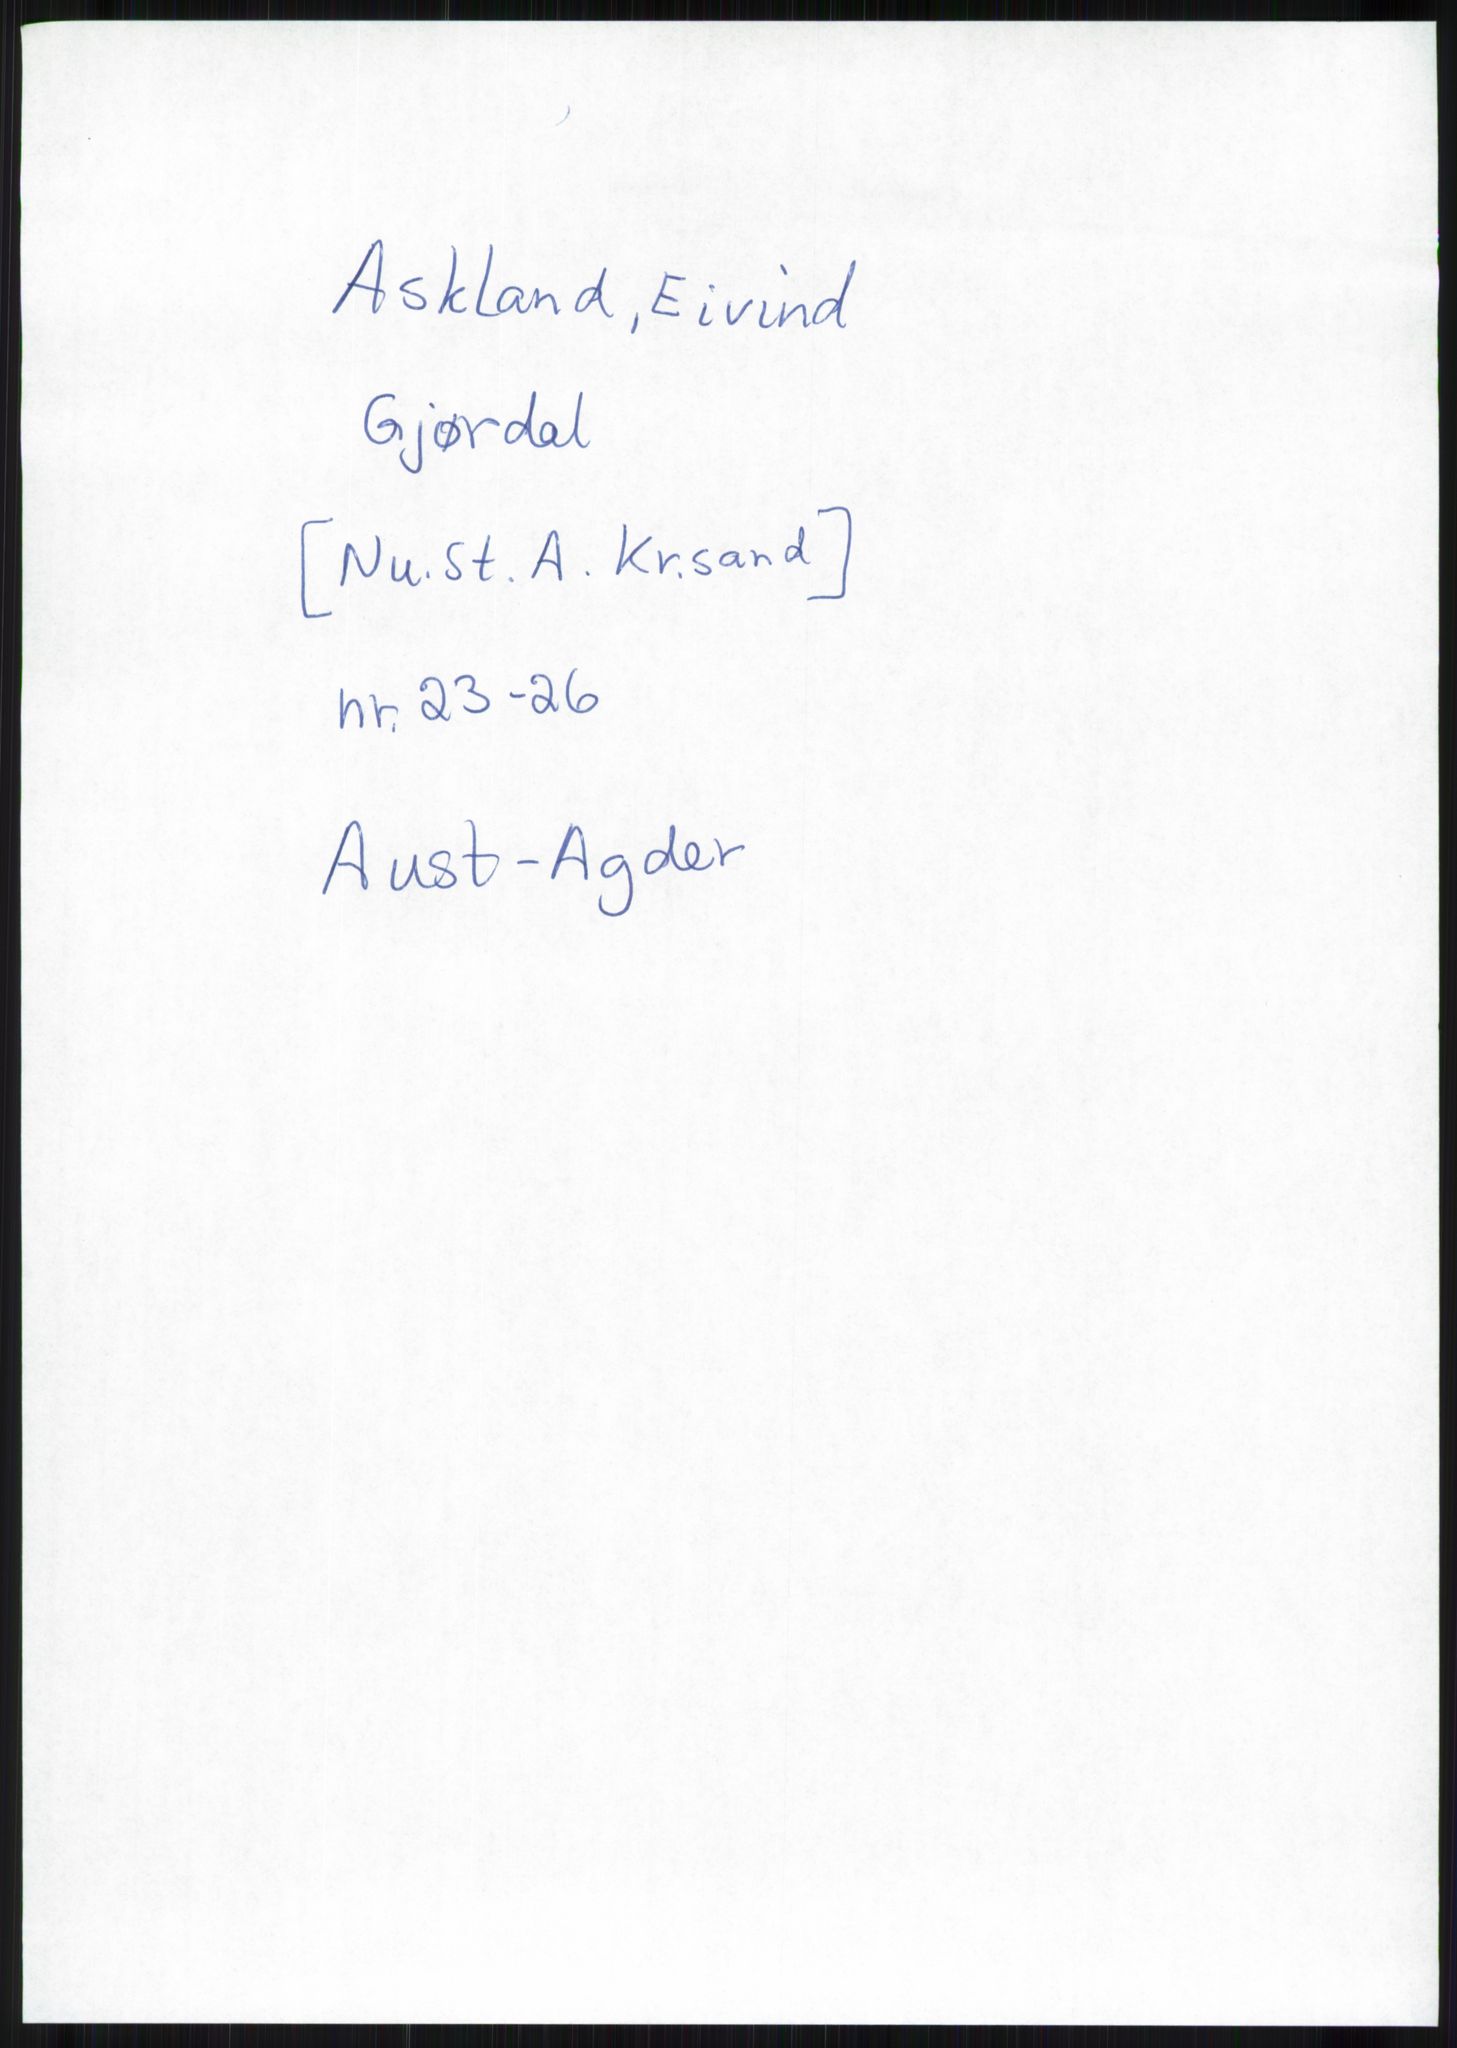 Askland, Eivind
Gjørdal
[Nu. St. A. Kr.sand]
nr. 23-26
Aust-Agder